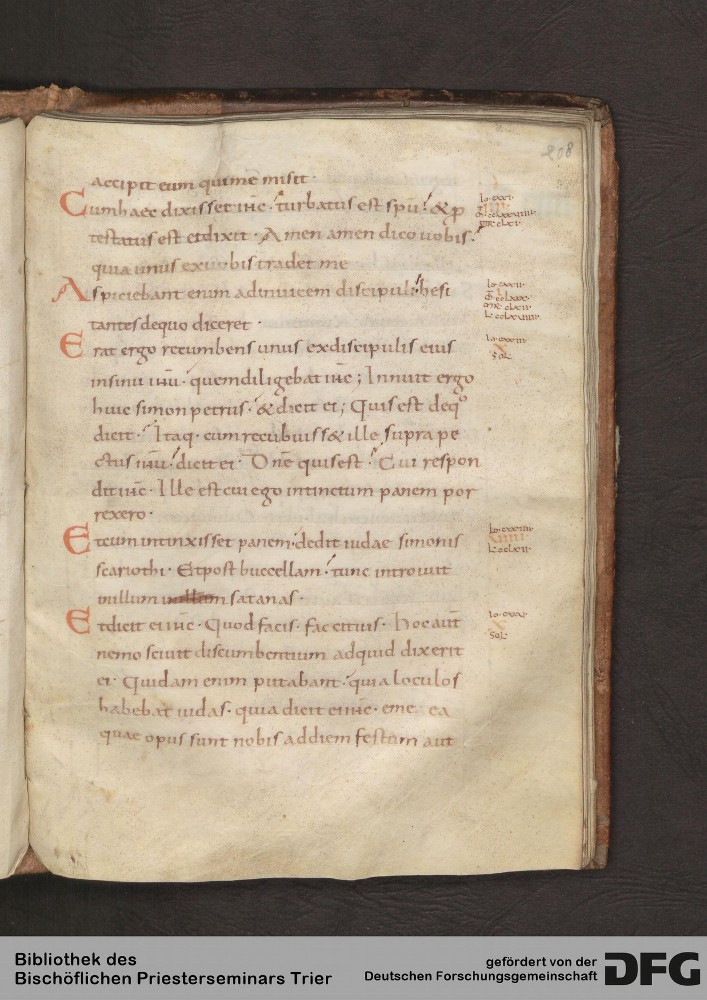 208
accipit eum qui me misit·
Cum haec dixisset ihc· turbatus est spu· & p
testatus est et dixit· Amen amen dico uobis·
quia unus ex uobis tradet me
Aspiciebant enim adinuicem discipuli hesi
tantes de quo diceret·
Erat ergo recumbens unus ex discipulis eius
in sinu ihu· quem diligebat ihc; Innuit ergo
huic simon petrus· & dicit ei; Quis est de qo
dicit· Itaq· cum recubuiss& ille supra pe
ctus ihu· dicit ei· Dne quis est· Cui respon
dit ihc· Ille est cui ego intinctum panem por
rexero·
Et cum intinxisset panem· dedit iudae simonis
scariothi· Et post buccellam· tunc introiuit
in illum satanas·
Et dicit ei ihc· Quod facis· fac citius· Hoc aut
nemo sciuit discumbentium ad quid dixerit
ei· Quidam enim putabant· quia loculos
habebat iudas· quia dicit ei ihc· eme ea
quae opus sunt nobis ad diem festum aut
Bibliothek des
Bischöflichen Priesterseminars Trier
gefördert von der
Deutschen Forschungsgemeinschaft
DFG